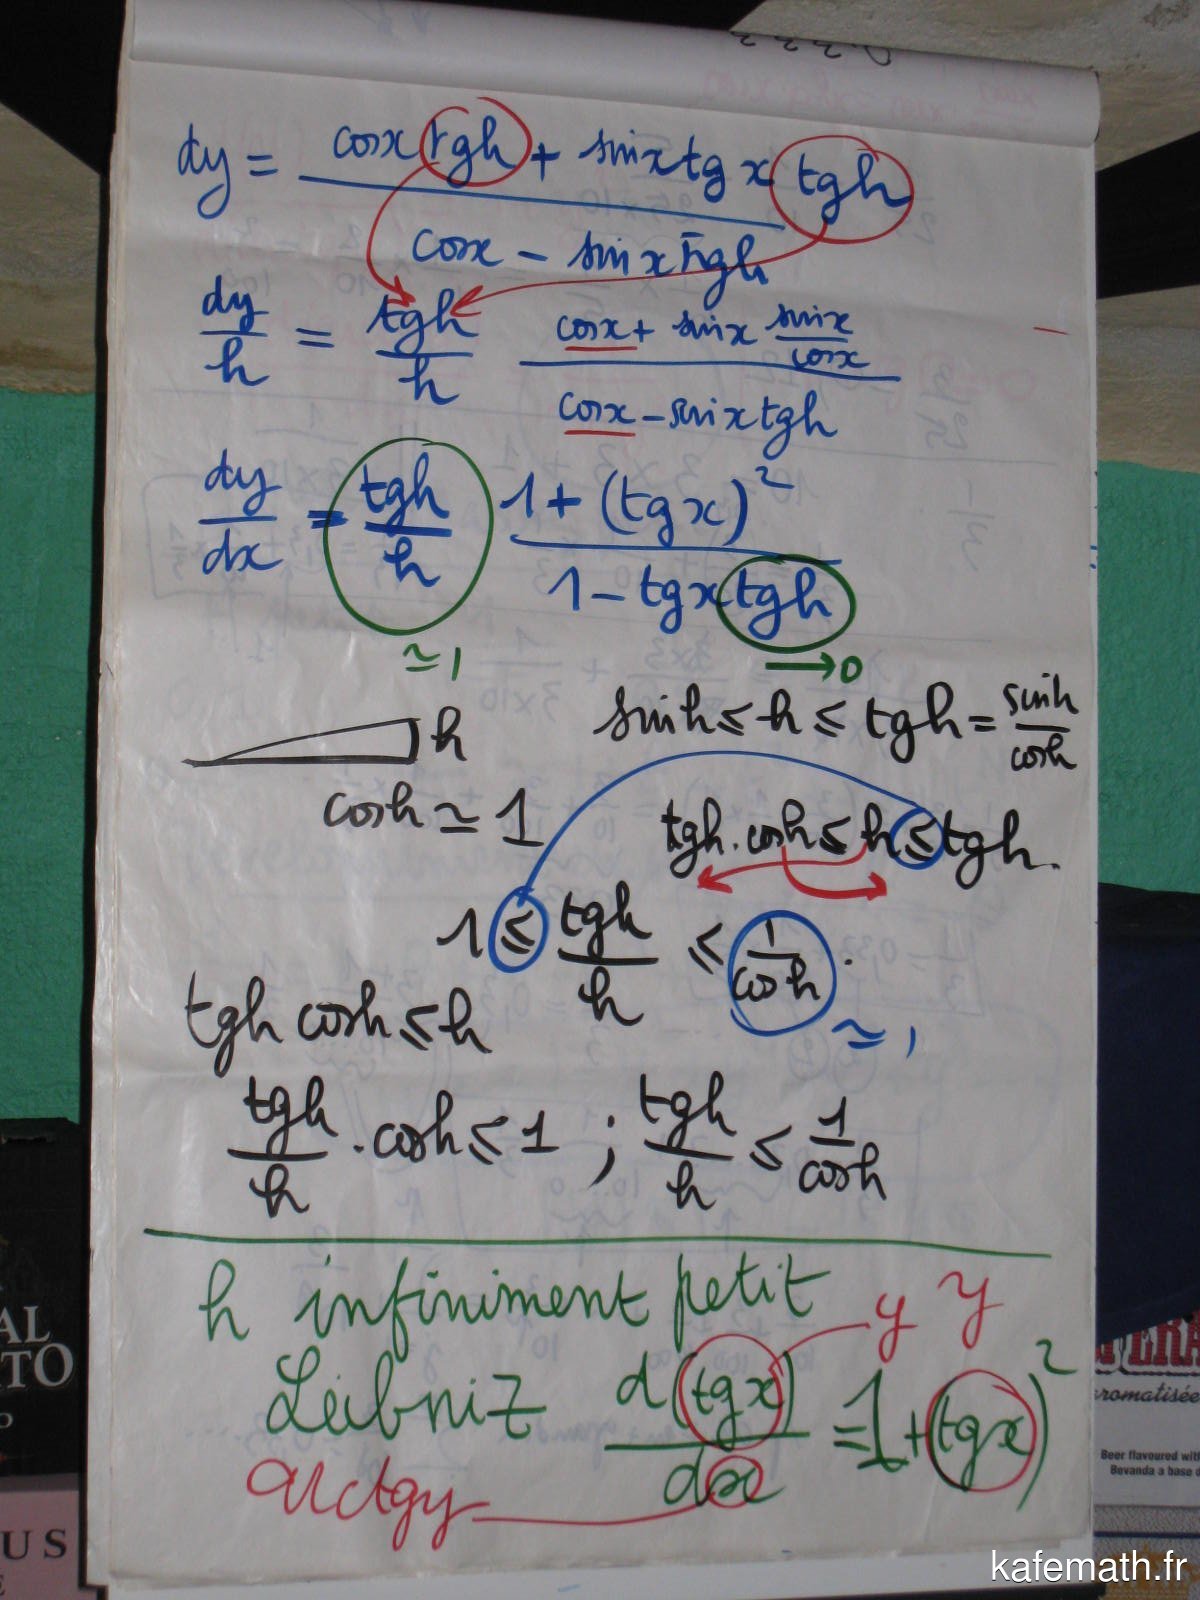 dy = (cosx tgh + sinx tg x tgh) / (cosx - sinx tgh)
dy/h = tgh/h (cosx + sinx sinx/cosx) / (cosx - sinx tgh)
dy/dx = tgh/h (1 + (tgx)²) / (1 - tgx tgh)
≃ 1 → 0
sinh ≤ h ≤ tgh = sinh/cosh
h
cosh ≃ 1
tgh . cosh ≤ h ≤ tgh .
1 ≤ tgh/h ≤ 1/cosh .
≃ 1
tgh cosh ≤ h
tgh/h . cosh ≤ 1 ; tgh/h ≤ 1/cosh
h infiniment petit
y y
Leibniz d(tgx)/dx = 1 + (tgx)²
arctgy
AL
TO
US
aromatisée
Beer flavoured with
Bevanda a base d
kafemath.fr